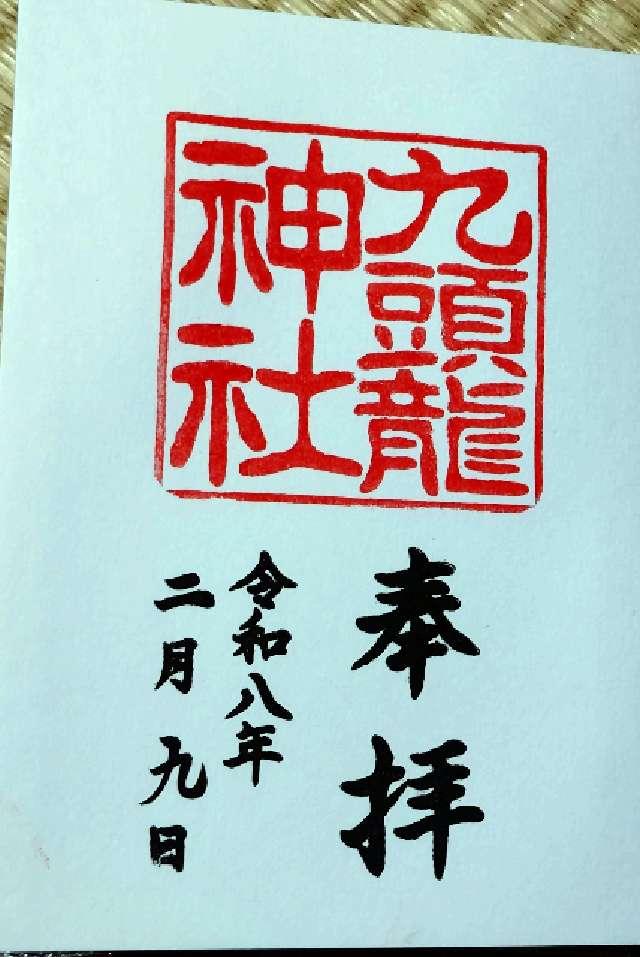 九頭龍
神社
奉拝
令和八年
二月九日